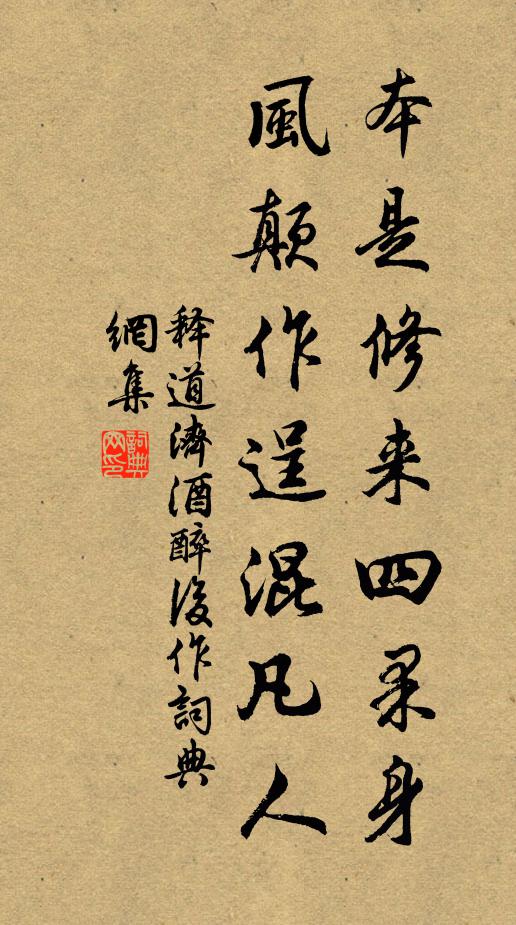 本是修来四果身
風顛作逞混凡人
释道濟酒醉後作詞典
網集
詞典
网印